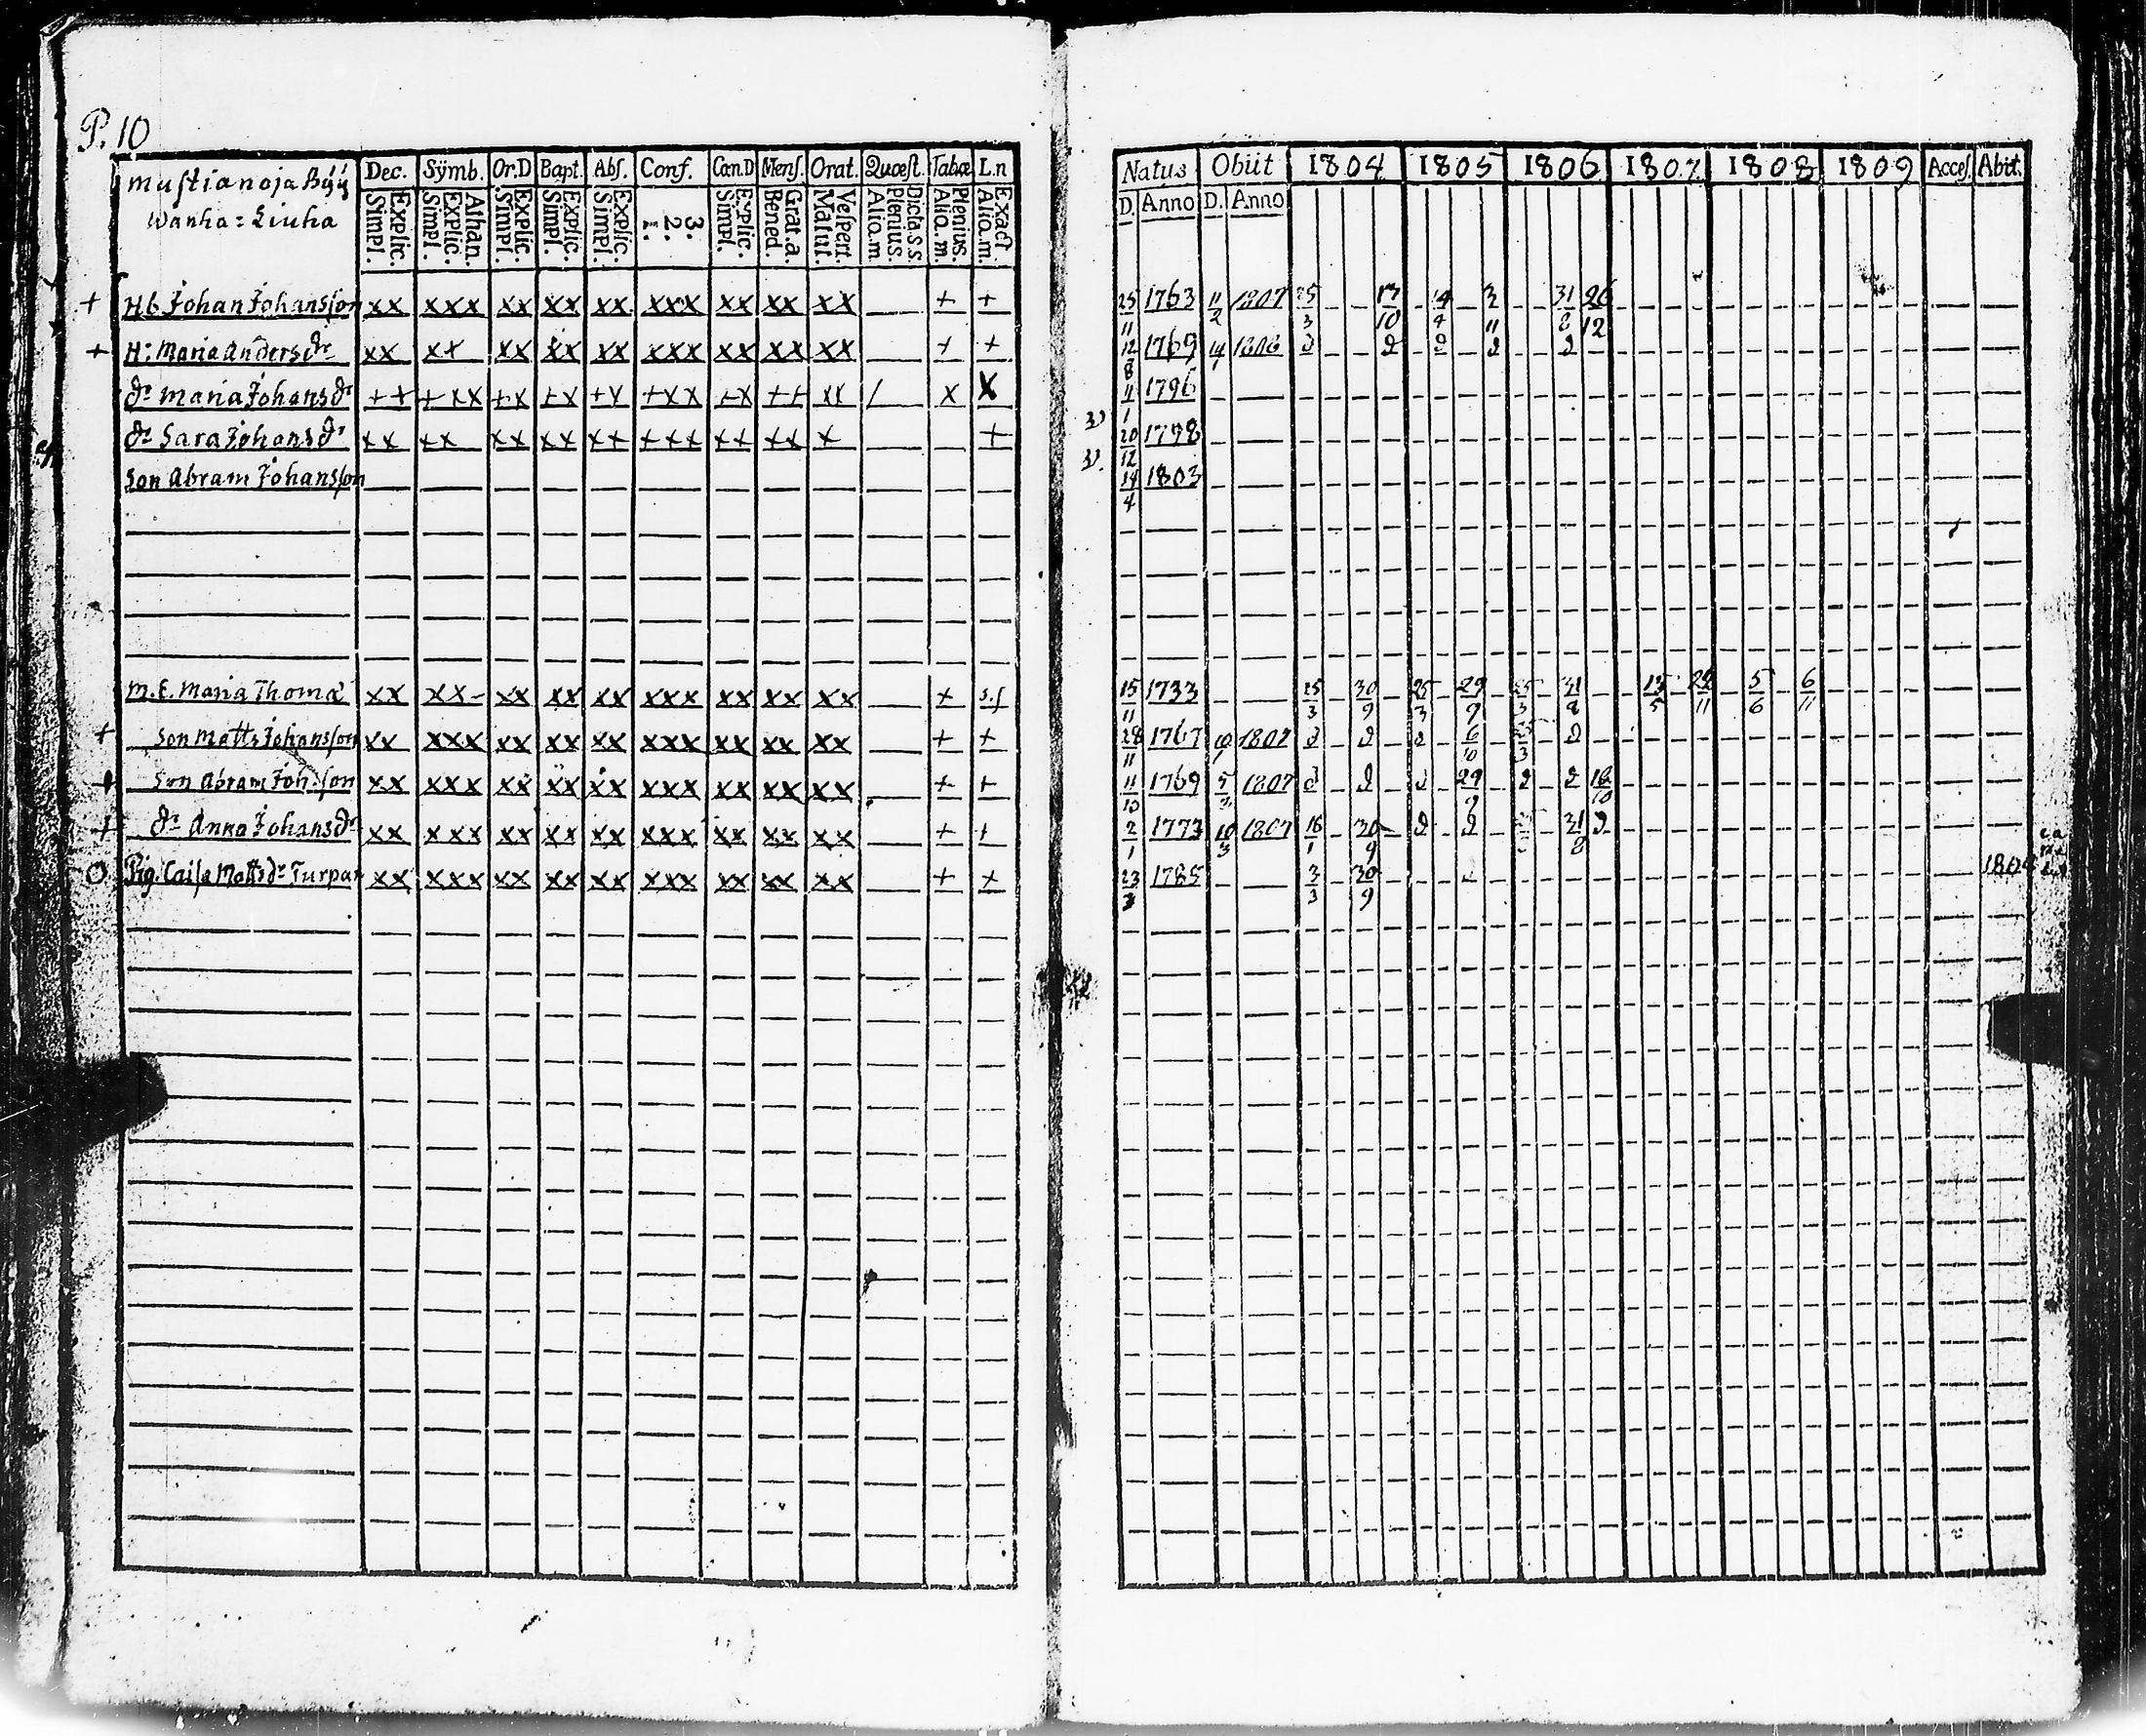 P. 10
Mustianoja Býÿ
Wanha=Liuha
Dec. Sÿmb. Or.D Bapt. Abs. Conf. Cœn.D Mens. Orat. Quæst. Tabæ L.n
Explic. Simpl. Athan. Explic. Simpl. Explic. Simpl. Explic. Simpl. Explic. Simpl. 3. 2. 1. Explic. Simpl. Grat.a. Bened. Vespert. Matut. Dicta S.S. Plenius. Aliq.m Plenius. Aliq.m. Exact. Aliq.m.
Natus Obiit 1804 1805 1806 1807 1808 1809 Acces. Abit.
D. Anno D. Anno
+ Hb. Johan Johansson xx xxx xx xx xx xxx xx xx xx + + 25/11 1763 11/2 1807 25/3 17/10 14/4 3/11 31/8 26/12
+ H: Maria Anders dr xx x+ xx xx xx xxx xx xx xx + + 12/8 1769 14/1 1808
dr Maria Johans dr ++ +xx +x +x +x +xx +x ++ xx / x x 11/1 1796
dr Sara Johans dr ++ ++ ++ ++ ++ +++ ++ ++ + + 20/12 1798
Son Abram Johansson 14/4 1803
M. E. Maria Thomæ xx xx- xx xx xx xxx xx xx xx + s.s 15/11 1733 25/3 30/9 25/3 29/9 25/3 31/8 13/5 22/11 5/6 6/11
+ Son Matts Johansson xx xxx xx xx xx xxx xx xx xx + + 28/11 1767 1807 6/10 25/3
+ Son Abram Joh:son xx xxx xx xx xx xxx xx xx xx + + 11/10 1769 5/3 1807 29/9 18/10
+ dr Anna Johans dr xx xxx xx xx xx xxx xx xx xx + + 2/1 1773 10/3 1807 16/1 30/9 31/8
O Pig. Caisa Matts dr Turpan xx xxx xx xx xx xxx xx xx xx + + 23/3 1785 3/3 30/9 1804